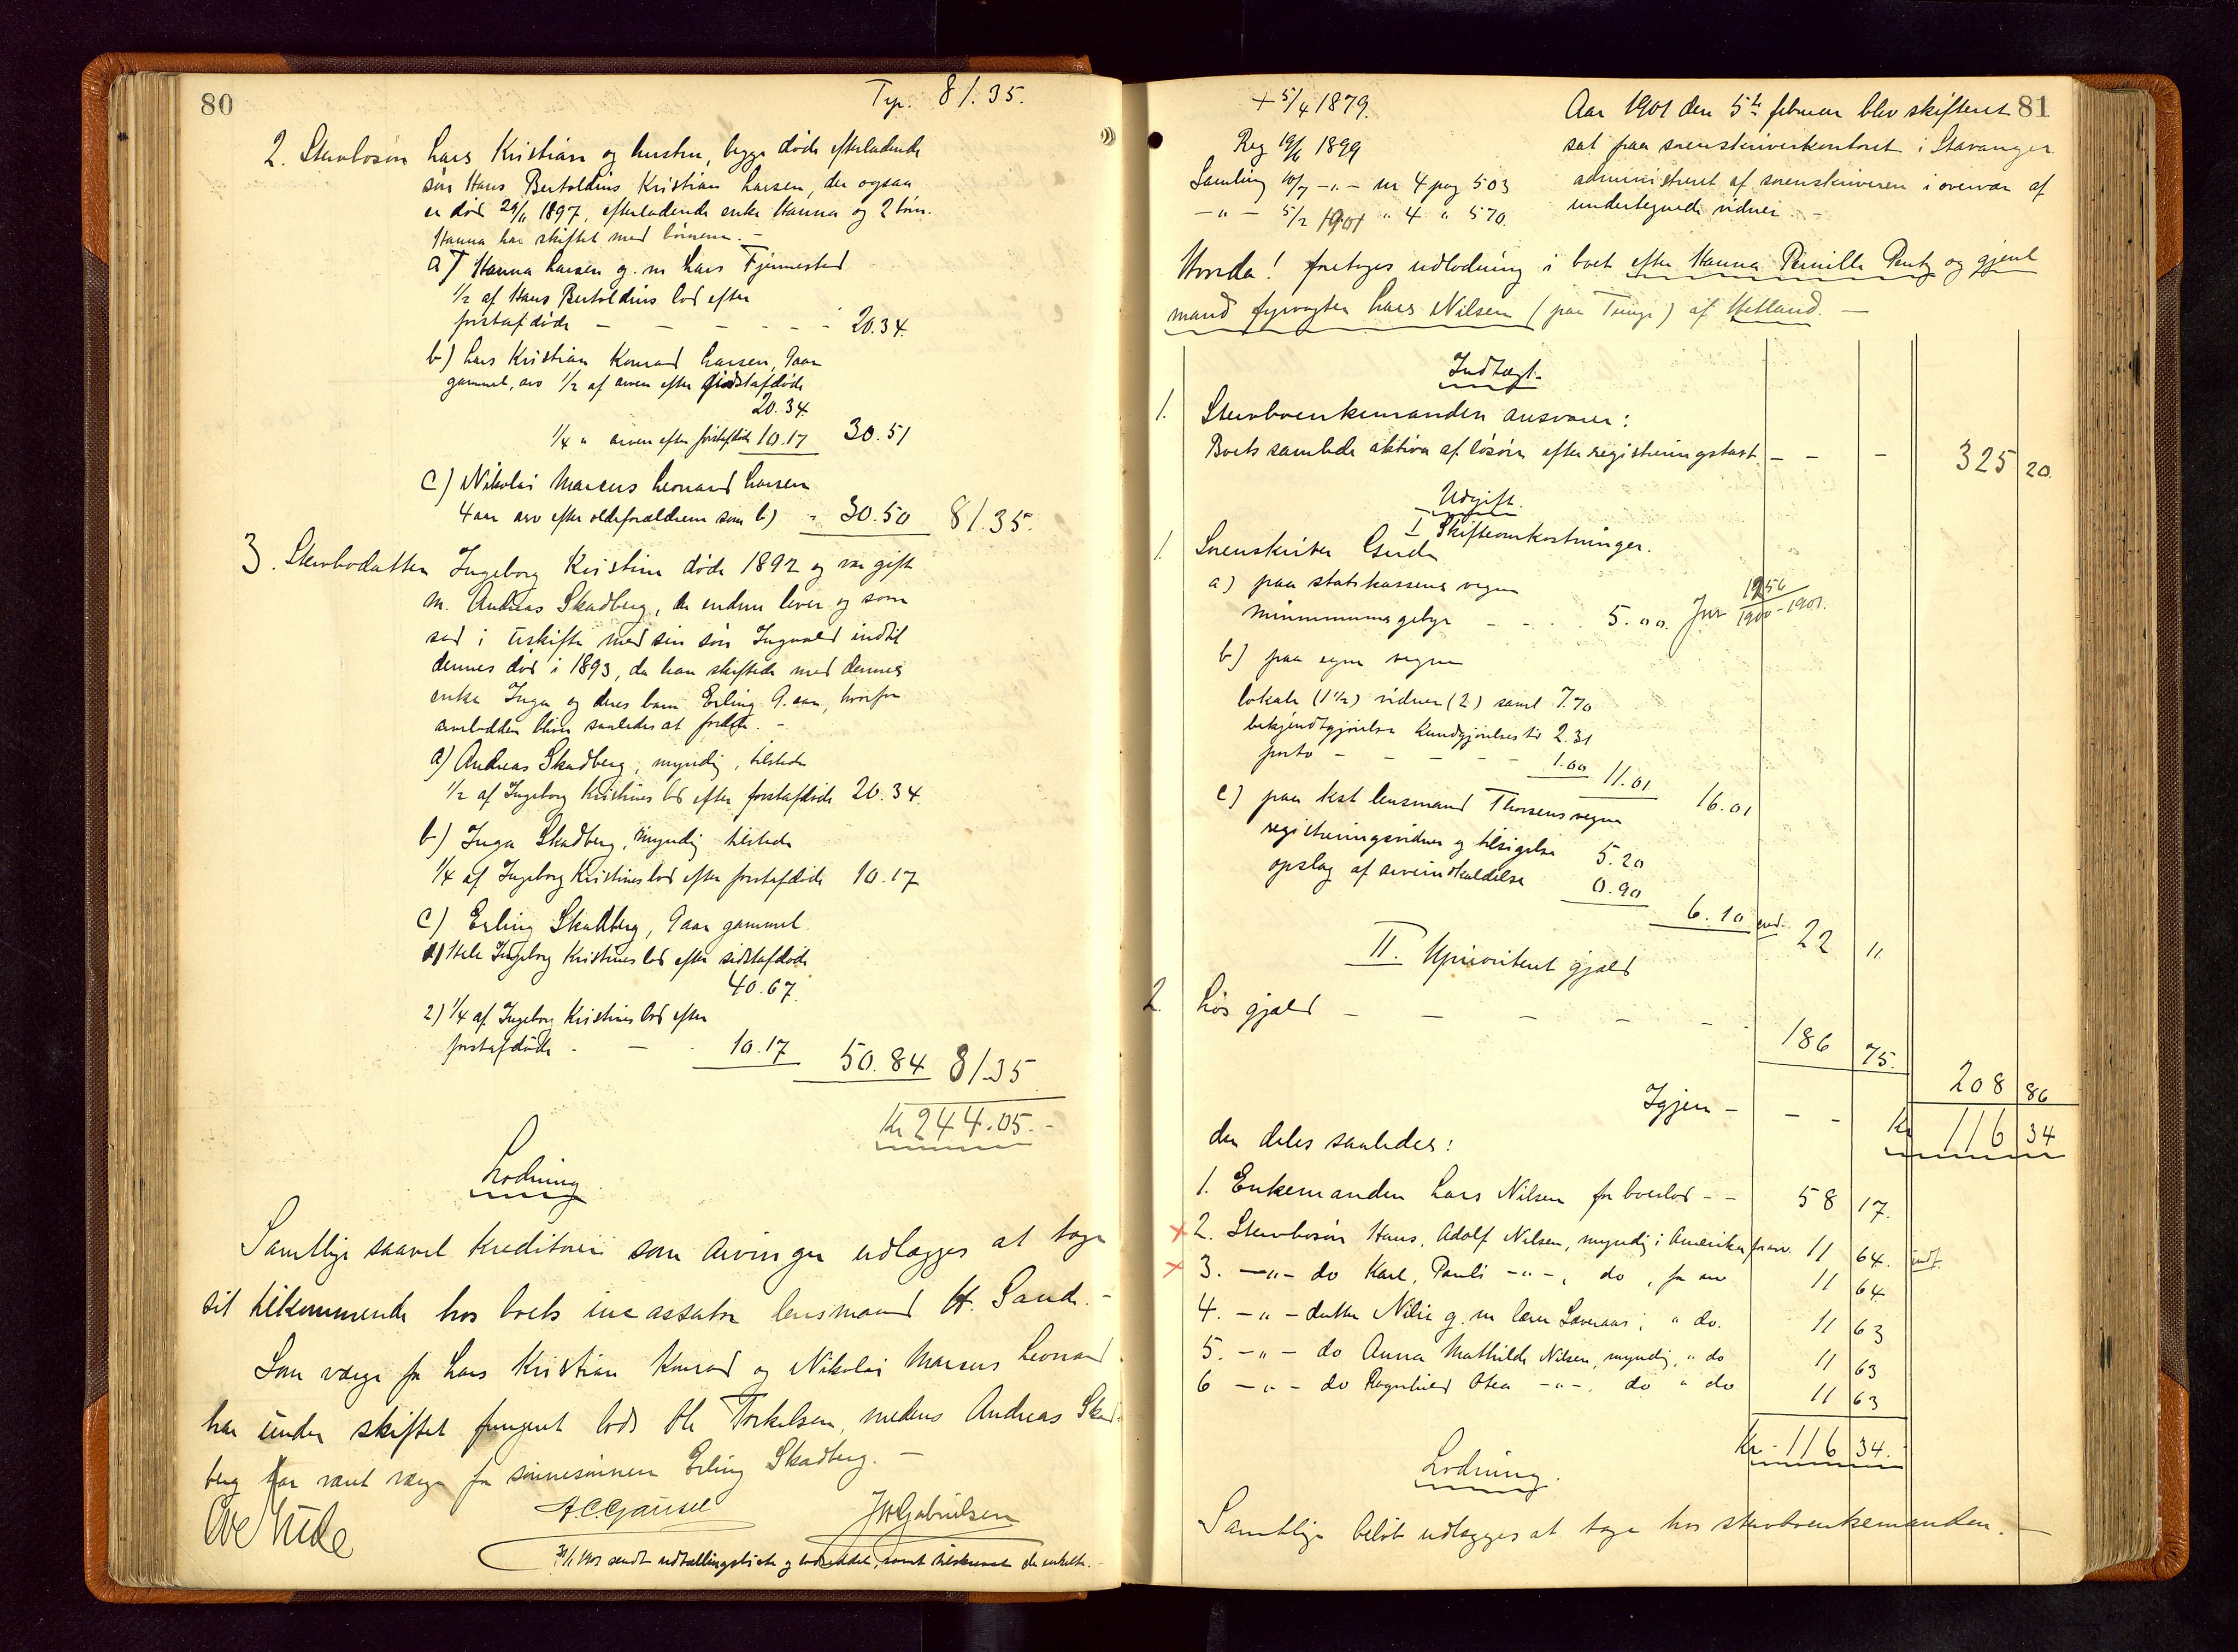 80
Tr. 81.35.
2. Stervbosøn Lars Kristian og hustru, begge døde efterladende
søn Hans Bertoldius Kristian Larsen, der ogsaa
er død 29/11 1897, efterladende enke Hanna og 2 børn.
Hanna har skiftet med børnene. -
a) Hanna Larsen g. m Lars Fjermestad
1/2 af Hans Bertoldius lod efter
førstafdøde - - - - - - 20.34.
b) Lars Kristian Konrad Larsen, 9 aar
gammel, arv 1/2 af arven efter sidstafdøde
20.34
1/4 " arven efter førstafdøde 10.17 30.51
C) Nikolai Marcus Leonard Larsen
4 aar arv efter oldeforældrene som b) - 30.50 81.35.
3. Stervbodatter Ingeborg Kristine døde 1892 og var gift
m. Andreas Skadberg, der endnu lever og som
sad i uskifte med sin søn Ingvald indtil
dennes død i 1893, da han skiftede med dennes
enke Inga og deres barn Erling 9. aar, hvorfor
arvelodden bliver saaledes at fordele. -
a) Andreas Skadberg, myndig, tilstede
1/2 af Ingeborg Kristines lod efter førstafdøde 20.34.
b) Inga Skadberg, myndig tilstede
1/4 af Ingeborg Kristines lod efter førstafdøde 10.17
C) Erling Skadberg, 9 aar gammel.
1) Hele Ingeborg Kristines lod efter sidstafdøde
40.67.
2) 1/4 af Ingeborg Kristines lod efter
førstafdøde - - - 10.17 50.84 81.35
Kr 244.05.-
Lodning.
Samtlige saavel kreditorer som arvinger udlægges at tage
sit tilkommende hos boets incassator lensmand H. Sande. -
Som værge for Lars Kristian Konrad og Nikolai Marcus Leonard
har under skiftet fungeret lods Ole Torkelsen, medens Andreas Skad-
berg har været værge for sønnesønnen Erling Skadberg. -
Ove Gude A. C. Gausel J W Gabrielsen
sendt udtællingsliste og lodseddel, samt tilskrevet de enkelte. -
81
+ 5/4 1879.
Reg 19/6 1899
Samling 10/7 -"- nr 4 pag 503
-"- 5/2 1901 " 4 " 570.
Aar 1901 den 5te februar blev skifteret
sat paa sorenskriverkontoret i Stavanger
administreret af sorenskriveren i overvær af
undertegnede vidner. -
Hvorda! foretoges udlodning i boet efter Hanna Pernille Pentz og gjenl
mand fyrvogter Lars Nilsen (paa Tunge) af Hetland. -
Indtægt.
1. Stervboenkemanden ansvarer:
Boets samlede aktiva af løsøre efter registreringstaxt - - - 325 20.
Udgift.
I Skifteomkostninger.
1. Sorenskriver Gude
a) paa statskassens vegne
minimumsgebyr - - - 5.00. Jnr 1256/1900-1901.
b) paa egne vegne
lokale (1 1/2) vidner (2) samt 7.70
bekjendtgjørelse Kundgjørelsestid 2.31
porto - - - - - 1.00 11.01 16.01
c) paa kst lensmand Thorsens vegne
registreringsvidner og tilsigelse 5.20
opslag af arveindkaldelse 0.90
6.10 22 11
II. Uprioriteret gjæld
2. Løs gjæld - - - - - 186 75. 208 86
Igjen - - - Kr 116 34
der deles saaledes:
1. Enkemanden Lars Nilsen for boeslod - - 58 17.
x 2. Stervbosøn Hans, Adolf Nilsen, myndig i Amerika for arv. 11 64.
x 3. -"- do Karl, Pauli -"-, do, for arv 11 64
4. -"- datter Nilie g. m lærer Saveraas; " do. 11 63
5. -"- do Anna Mathilde Nilsen, myndig, " do 11 63
6 -"- do Ragnhild Otea -"-, do " do 11 63
Kr. 116 34.
Lodning.
Samtlige beløb udlægges at tage hos stervboenkemanden. -